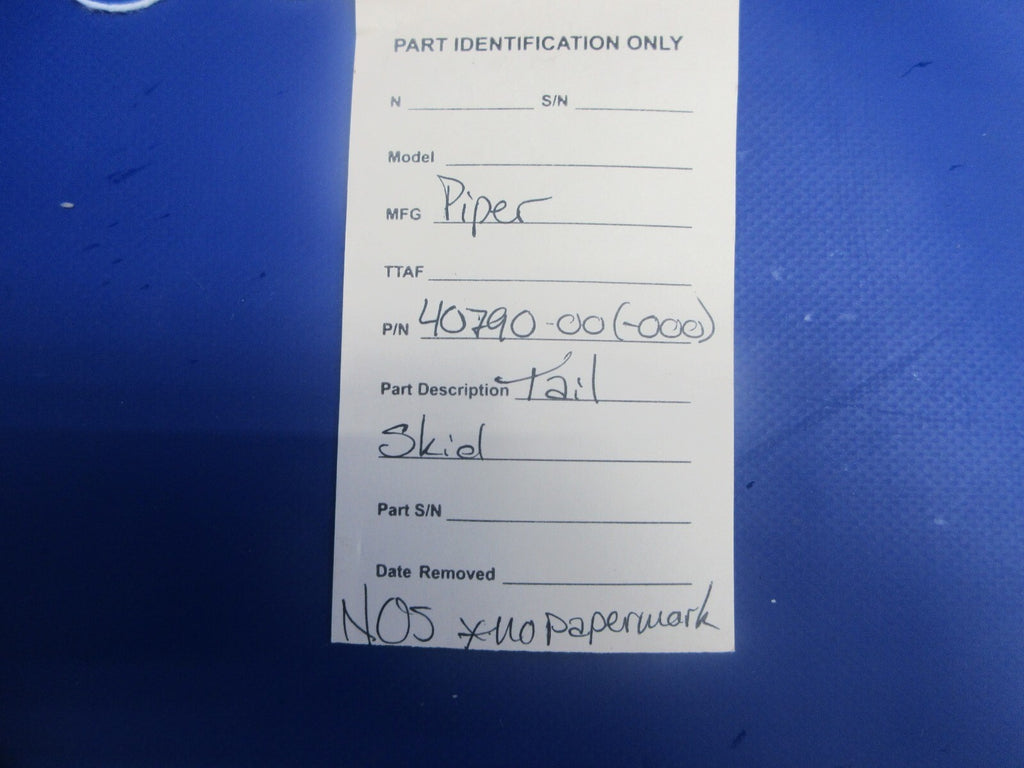 PART IDENTIFICATION ONLY
N S/N
Model
MFG Piper
TTAF
P/N 40790-00 (-000)
Part Description Tail
Skid
Part S/N
Date Removed
NOS *no paperwork